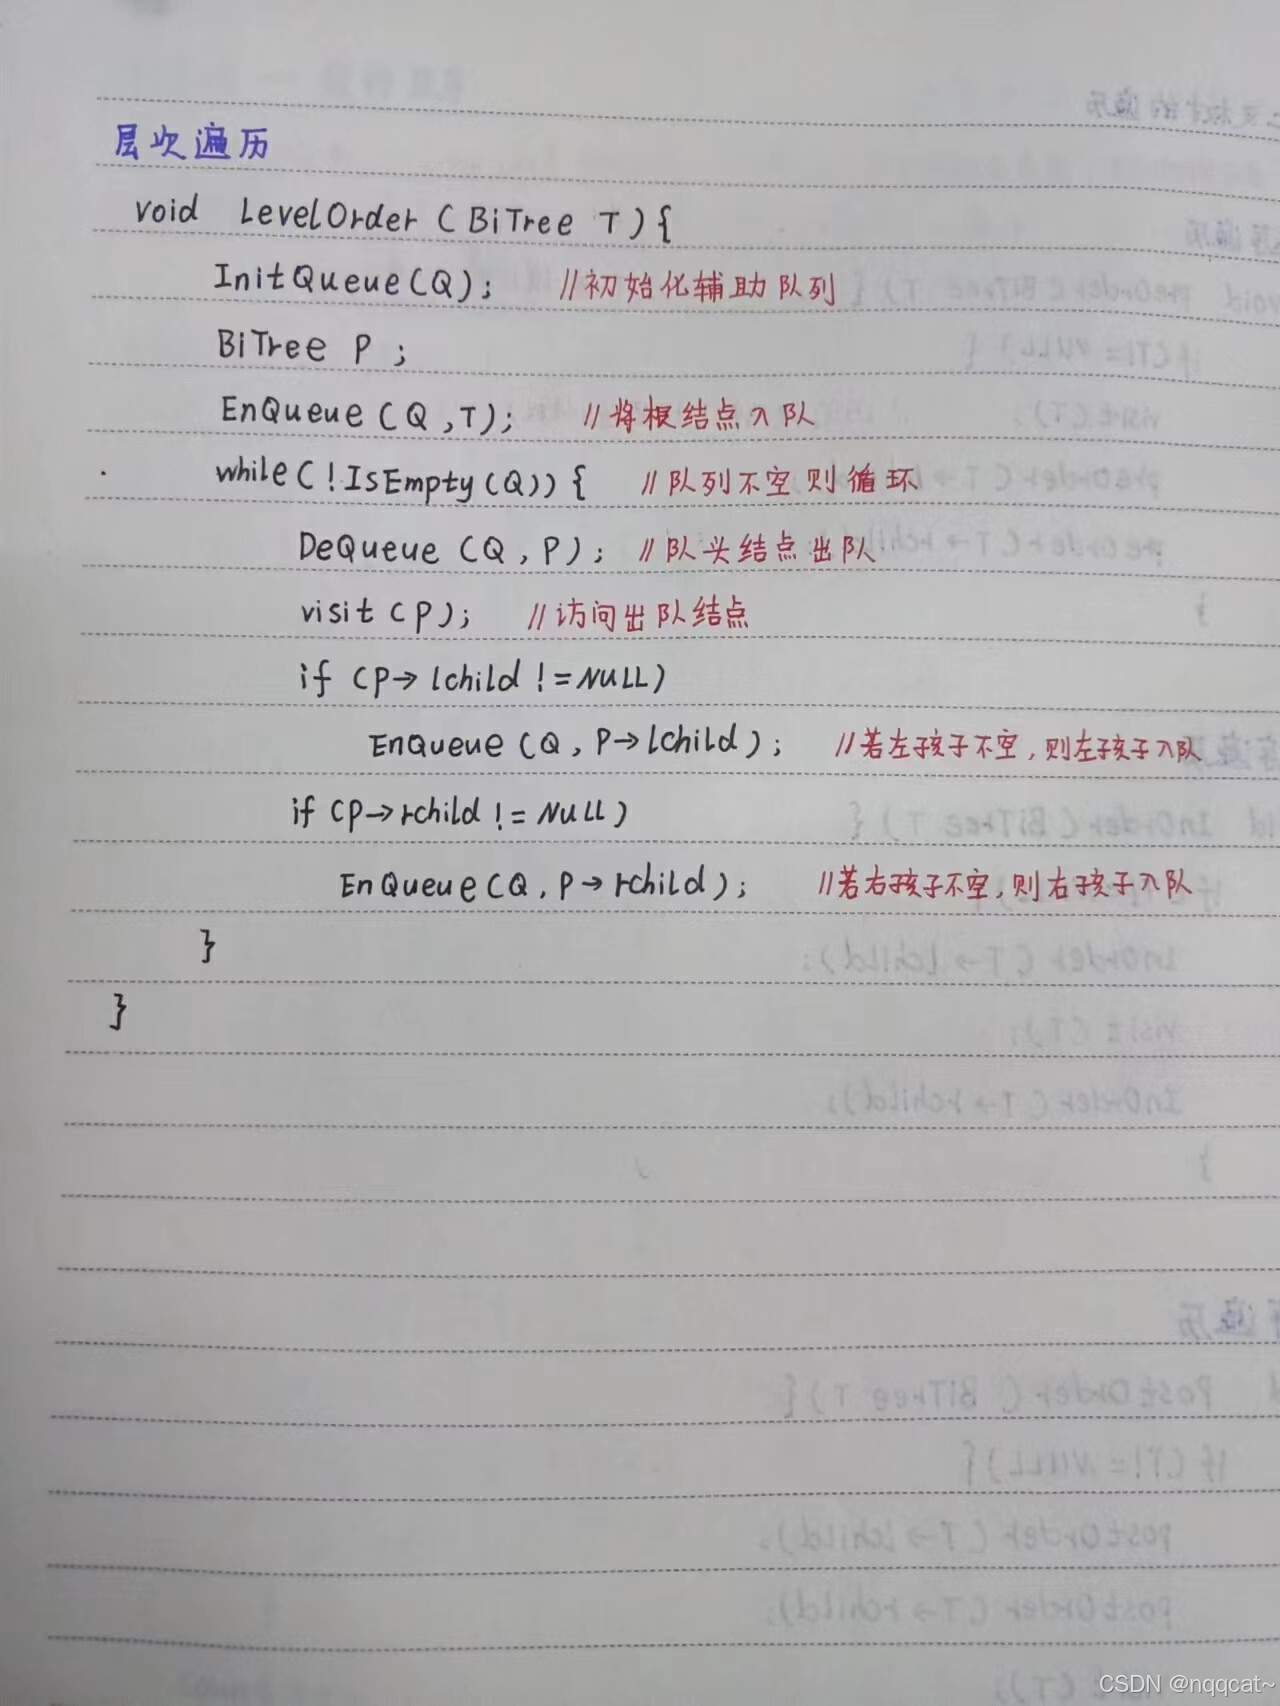 层次遍历
void LevelOrder (BiTree T){
InitQueue(Q); //初始化辅助队列
BiTree P;
EnQueue(Q,T); //将根结点入队
while(!IsEmpty(Q)){ //队列不空则循环
DeQueue(Q,P); //队头结点出队
visit(P); //访问出队结点
if (P→lchild!=NULL)
EnQueue(Q,P→lchild); //若左孩子不空,则左孩子入队
if (P→rchild!=NULL)
EnQueue(Q,P→rchild); //若右孩子不空,则右孩子入队
}
}
CSDN @nqqcat~